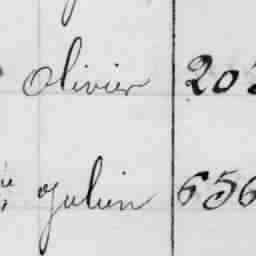 Olivier 202
Julien 656